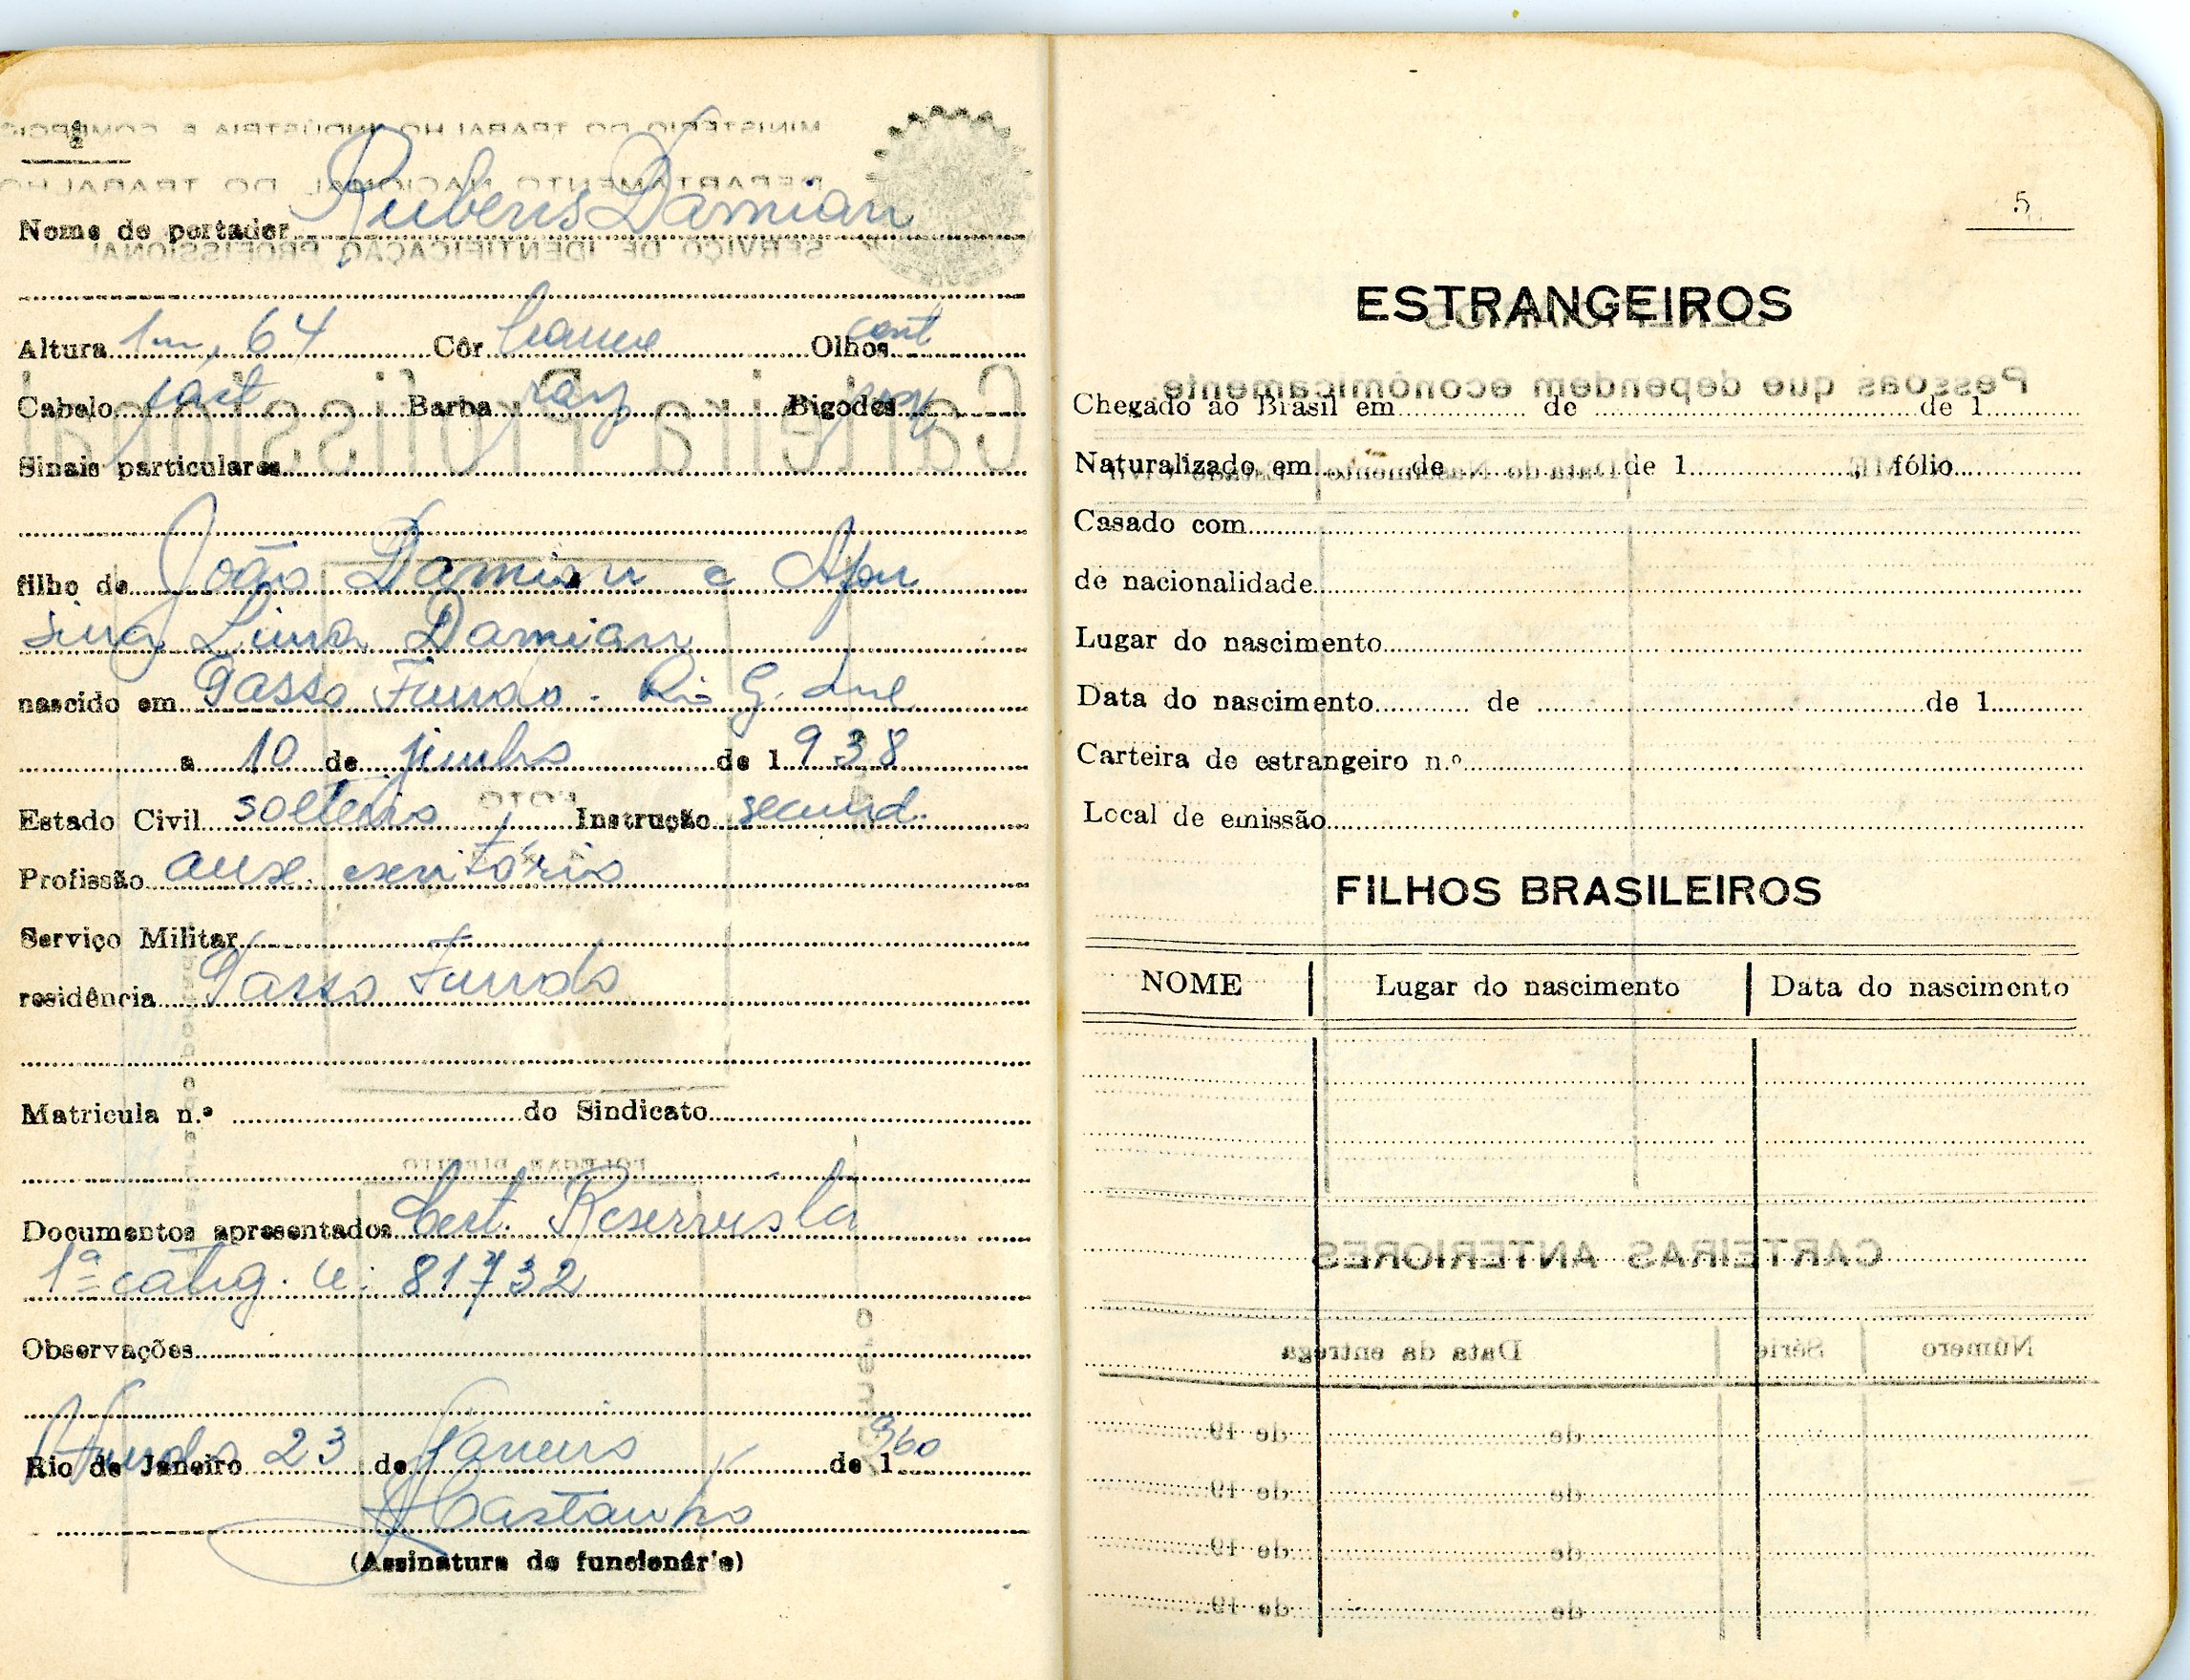 Nome do portador Rubens Damian
Altura 1m,64 Côr branca Olhos cast
Cabelo cast Barba rasp Bigodes rasp
Sinais particulares
filho de João Damian e Afon
sina Lima Damian
nascido em Passo Fundo - Rio G. Sul
a 10 de junho de 1938
Estado Civil solteiro Instrução secund.
Profissão aux. escritório
Serviço Militar
residência Passo Fundo
Matricula n.º do Sindicato
Documentos apresentados Cert. Reservista
1ª categ. n: 81732
Observações
Rio de Janeiro 23 de Janeiro de 1960
Castanho
(Assinatura do funcionário)
5
ESTRANGEIROS
Chegado ao Brasil em de de 1
Naturalizado em de de 1 , fólio
Casado com
de nacionalidade
Lugar do nascimento
Data do nascimento de de 1
Carteira de estrangeiro n.º
Local de emissão
FILHOS BRASILEIROS
NOME Lugar do nascimento Data do nascimento